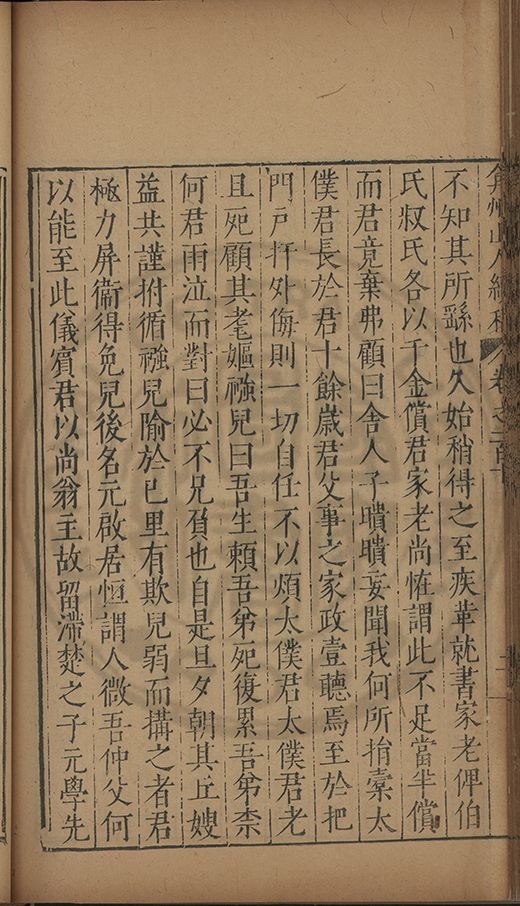 弇州山人續稿 卷之一百十
不知其所繇也久始稍得之至疾革就書家老俾伯
氏叔氏各以千金償君家老尚恠謂此不足當半償
而君竟棄弗顧曰舍人子嘖嘖妄聞我何所捐橐太
僕君長於君十餘歲君父事之家政壹聽焉至於把
門戶扞外侮則一切自任不以煩太僕君太僕君老
且死顧其耄嫗襁兒曰吾生頼吾弟死復累吾弟柰
何君雨泣而對曰必不兄負也自是旦夕朝其丘嫂
益共謹拊循襁兒隃於巳里有欺兒弱而搆之者君
極力屏衞得免兒後名元啟居恒謂人微吾仲父何
以能至此儀賓君以尚翁主故留滯楚之子元學先